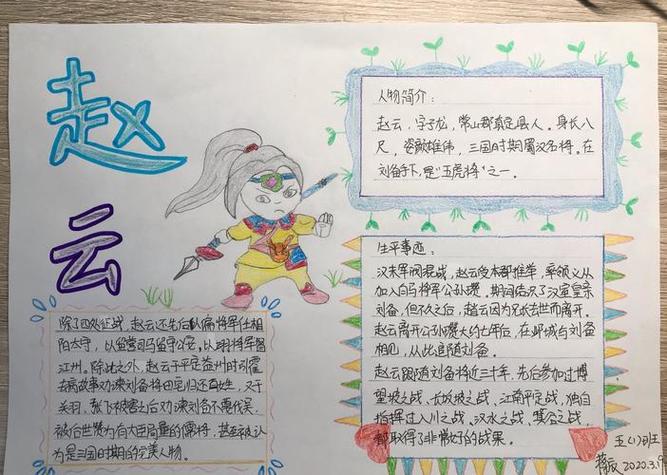 赵
云
人物简介：
赵云，字子龙，常山郡真定县人。身长八
尺，姿颜雄伟，三国时期蜀汉名将。在
刘备手下，是"五虎将"之一。
生平事迹：
汉末军阀混战，赵云受本郡推举，率领义从
加入白马将军公孙瓒。期间结识了汉室皇亲
刘备，但不久之后，赵云因为兄长去世而离开。
赵云离开公孙瓒大约七年后，在邺城与刘备
相见，从此追随刘备。
赵云跟随刘备将近三十年，先后参加过博
望坡之战、长坂坡之战、江南平定战，独自
指挥过入川之战、汉水之战、箕谷之战，
都取得了非常好的战果。
除了四处征战，赵云还先后以偏将军任桂
阳太守，以留营司马留守公安，以翊军将军督
江州。除此之外，赵云于平定益州时引霍
去病故事劝谏刘备将田宅归还百姓，又于
关羽、张飞被害之后劝谏刘备不要伐吴，
被后世赞为有大臣局量的儒将，甚至被认
为是三国时期的完美人物。
五(1)班
2020.3.9